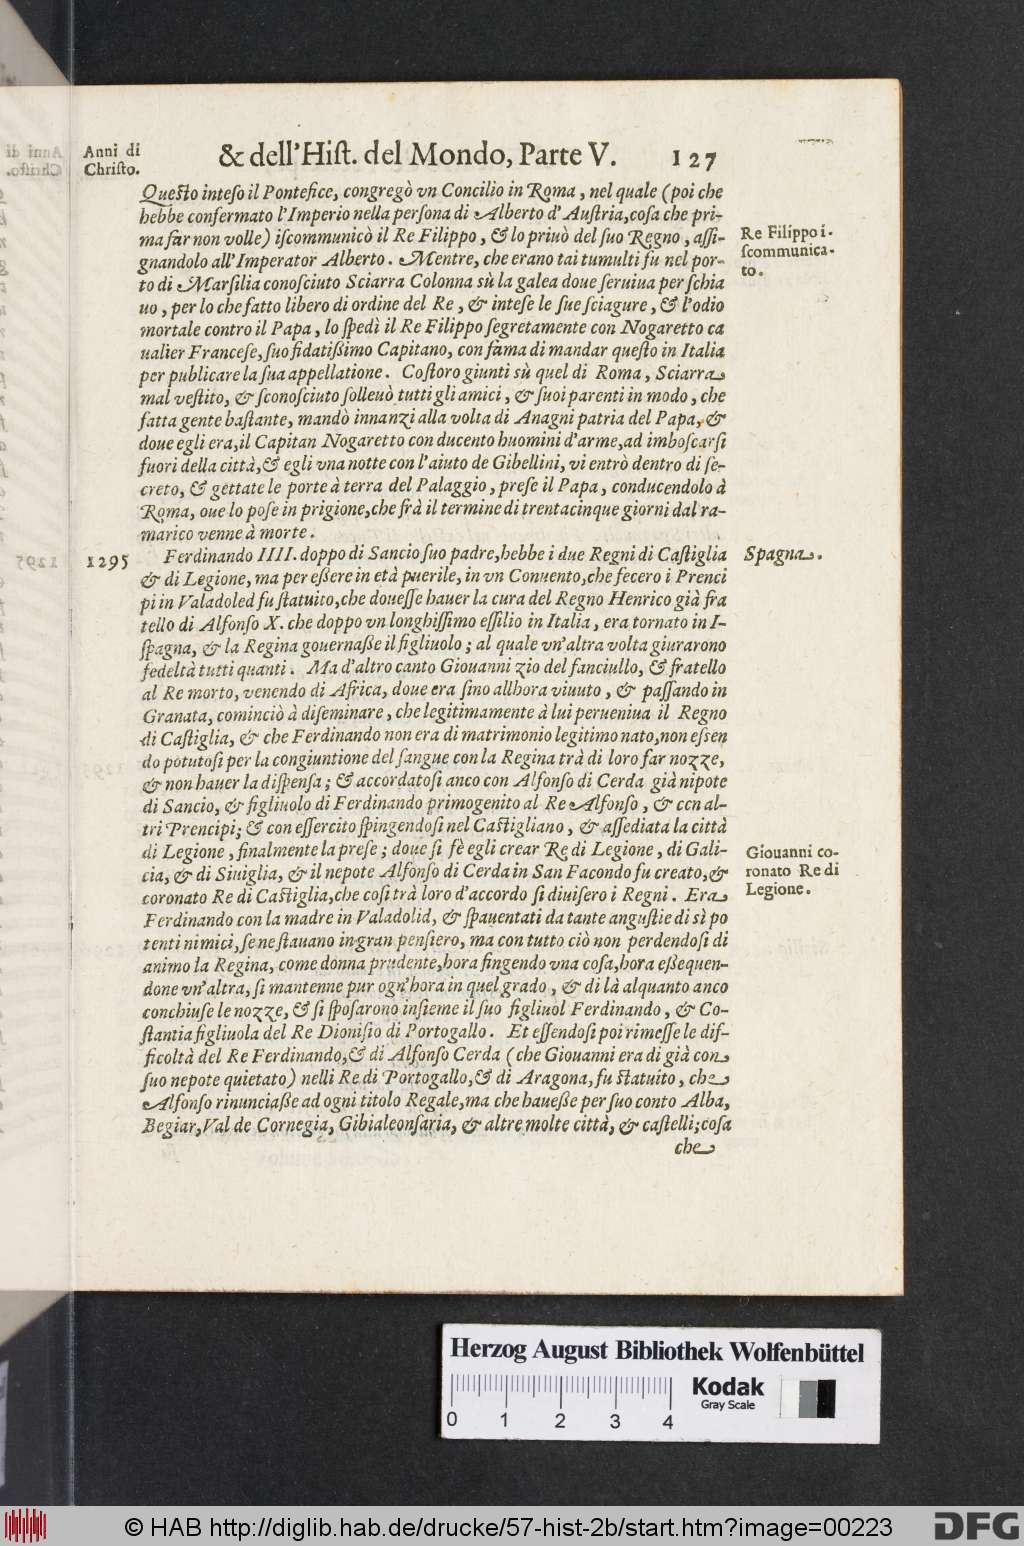 Anni di
Christo.
& dell'Hiſt. del Mondo, Parte V. 127
Queſto inteſo il Pontefice, congregò vn Concilio in Roma, nel quale (poi che
hebbe confermato l'Imperio nella perſona di Alberto d'Auſtria, coſa che pri-
ma far non volle) iſcommunicò il Re Filippo, & lo priuò del ſuo Regno, aſſi-
gnandolo all'Imperator Alberto. Mentre, che erano tai tumulti fù nel por-
to di Marſilia conoſciuto Sciarra Colonna sù la galea doue ſeruiua per ſchia
uo, per lo che fatto libero di ordine del Re, & inteſe le ſue ſciagure, & l'odio
mortale contro il Papa, lo ſpedì il Re Filippo ſegretamente con Nogaretto ca
ualier Franceſe, ſuo fidatißimo Capitano, con fama di mandar queſto in Italia
per publicare la ſua appellatione. Coſtoro giunti sù quel di Roma, Sciarra
mal veſtito, & ſconoſciuto ſolleuò tutti gli amici, & ſuoi parenti in modo, che
fatta gente baſtante, mandò innanzi alla volta di Anagni patria del Papa, &
doue egli era, il Capitan Nogaretto con ducento huomini d'arme, ad imboſcarſi
fuori della città, & egli vna notte con l'aiuto de Gibellini, vi entrò dentro di ſe-
creto, & gettate le porte à terra del Palaggio, preſe il Papa, conducendolo à
Roma, oue lo poſe in prigione, che frà il termine di trentacinque giorni dal ra-
marico venne à morte.
Re Filippo i-
ſcommunica-
to.
1295
Ferdinando IIII. doppo di Sancio ſuo padre, hebbe i due Regni di Caſtiglia
& di Legione, ma per eßere in età puerile, in vn Conuento, che fecero i Prenci
pi in Valadoled fu ſtatuito, che doueſſe hauer la cura del Regno Henrico già fra
tello di Alfonſo X. che doppo vn longhiſſimo eſſilio in Italia, era tornato in I-
ſpagna, & la Regina gouernaße il figliuolo; al quale vn'altra volta giurarono
fedeltà tutti quanti. Ma d'altro canto Giouanni zio del fanciullo, & fratello
al Re morto, venendo di Africa, doue era ſino allhora viuuto, & paſſando in
Granata, cominciò à diſeminare, che legitimamente à lui perueniua il Regno
di Caſtiglia, & che Ferdinando non era di matrimonio legitimo nato, non eſſen
do potutoſi per la congiuntione del ſangue con la Regina trà di loro far nozze,
& non hauer la diſpenſa; & accordatoſi anco con Alfonſo di Cerda già nipote
di Sancio, & figliuolo di Ferdinando primogenito al Re Alfonſo, & con al-
tri Prencipi; & con eſſercito ſpingendoſi nel Caſtigliano, & aſſediata la città
di Legione, finalmente la preſe; doue ſi fè egli crear Re di Legione, di Gali-
cia, & di Siuiglia, & il nepote Alfonſo di Cerda in San Facondo fu creato, &
coronato Re di Caſtiglia, che coſi trà loro d'accordo ſi diuiſero i Regni. Era
Ferdinando con la madre in Valadolid, & ſpauentati da tante anguſtie di sì po
tenti nimici, ſe ne ſtauano in gran penſiero, ma con tutto ciò non perdendoſi di
animo la Regina, come donna prudente, hora fingendo vna coſa, hora eßequen-
done vn'altra, ſi mantenne pur ogn'hora in quel grado, & di là alquanto anco
conchiuſe le nozze, & ſi ſpoſarono inſieme il ſuo figliuol Ferdinando, & Co-
ſtantia figliuola del Re Dioniſio di Portogallo. Et eſſendoſi poi rimeſſe le dif-
ficoltà del Re Ferdinando, & di Alfonſo Cerda (che Giouanni era di già con
ſuo nepote quietato) nelli Re di Portogallo, & di Aragona, fu ſtatuito, che
Alfonſo rinunciaße ad ogni titolo Regale, ma che haueße per ſuo conto Alba,
Begiar, Val de Cornegia, Gibialeonſaria, & altre molte città, & caſtelli; coſa
che
Spagna.
Giouanni co-
ronato Re di
Legione.
Herzog August Bibliothek Wolfenbüttel
0 1 2 3 4
Kodak
Gray Scale
© HAB http://diglib.hab.de/drucke/57-hist-2b/start.htm?image=00223
DFG